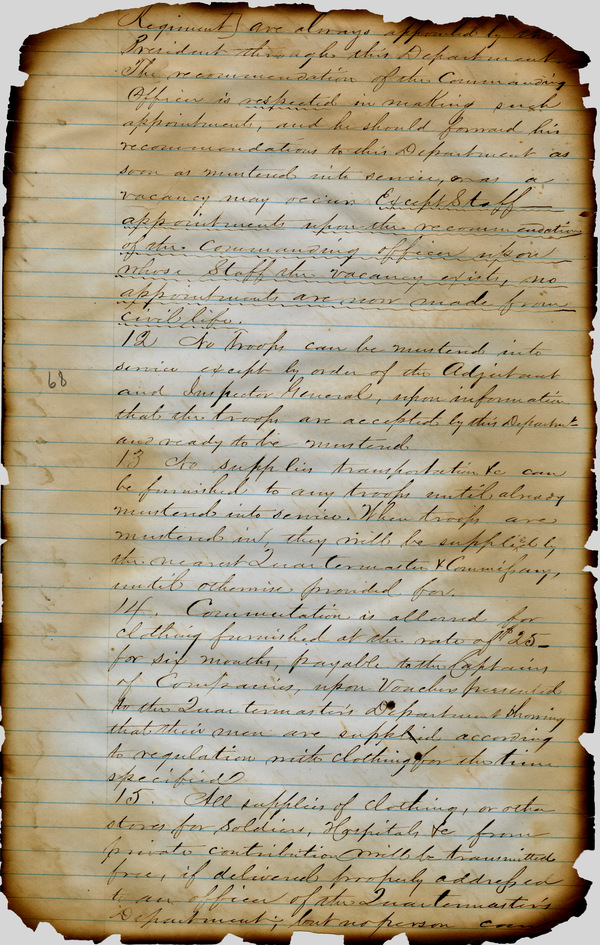 Regiment] are always appointed by the
President through this Department
The recommendation of the Commanding
Officer is respected in making such
appointments, and he should forward his
recommendations to this Department as
soon as mustered into service, or as a
vacancy may occur. Except Staff
appointments upon the recommendation
of the Commanding officer upon
whose Staff the vacancy exists, no
appointments are now made from
civil life.
12 No Troops can be mustered into
service except by order of the Adjutant
68
and Inspector General, upon information
that the troops are accepted by this Departmt
and ready to be mustered
13 No supplies transportation &c can
be furnished to any troops until already
mustered into service. When troops are
mustered in, they will be supplied by
the nearest Quartermaster & Commissary,
until otherwise provided for.
14. Commutation is allowed for
clothing furnished at the rate of $25
for six months, payable to the Captains
of Companies, upon Vouchers presented
to the Quartermaster's Department showing
that their men are supplied according
to regulation with clothing for the time
specified
15. All supplies of clothing, or other
stores for Soldiers, Hospitals &c from
private contribution will be transmitted
free, if delivered properly addressed
to an officer of the Quartermaster's
Department; but no person can